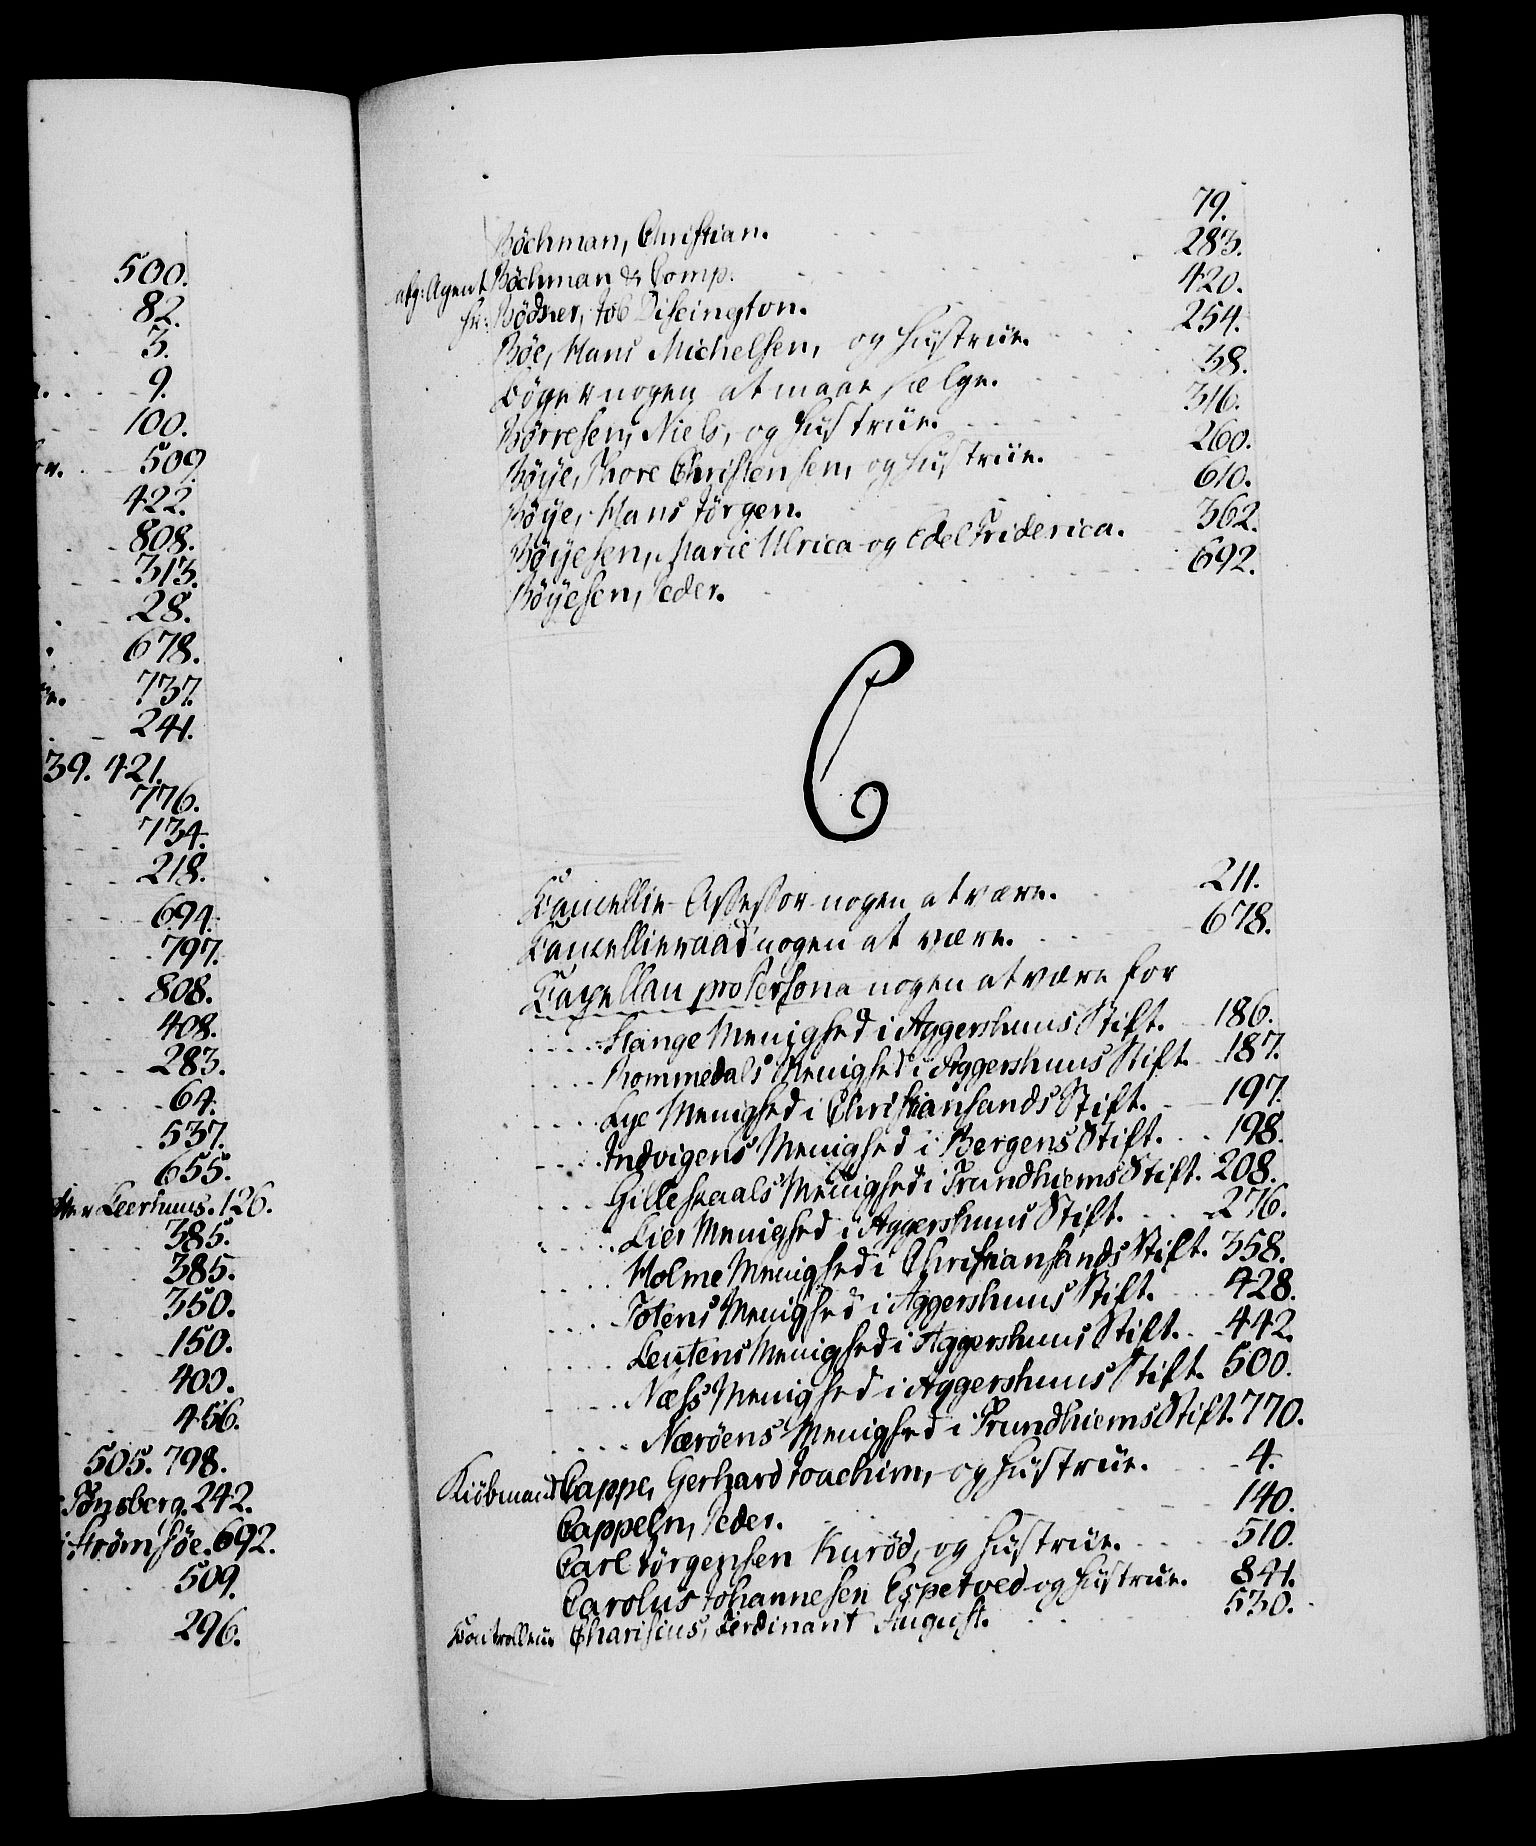 500.
82.
3.
9.
100.
509.
422.
808.
313.
28.
678.
737.
241.
39. 421.
776.
734.
218.
694.
797.
808.
408.
283.
64.
537.
655.
Leerhuus. 126.
385.
385.
350.
150.
400.
456.
505. 798.
Tønsberg. 242.
Strømsøe. 692.
509.
296.
Böchman, Christian. 79.
afg: Agent Böchman & Comp. 283.
Hr: Bödker, Job Discington. 420.
Böe, Hans Michelsen, og Hustrue. 254.
Bøger nogen at maae sælge. 38.
Börresen, Niels, og Hustrue. 316.
Böÿe, Thore Christensen, og Hustrue. 260.
Böÿe, Hans Jörgen. 610.
Böÿesen, Marie Ulrica og Edel Friderica. 362.
Böÿesen, Peder. 692.
C
Cancellie-Assessor nogen at være. 211.
Cancellieraad nogen at være. 678.
Capellan pro Persona nogen at være for
Stange Menighed i Aggershuus Stift. 186.
Rommedals Menighed i Aggershuus Stift. 187.
Lye Menighed i Christiansands Stift. 197.
Indvigens Menighed i Bergens Stift. 198.
Gilleskaals Menighed i Trundhiems Stift. 208.
Lier Menighed i Aggershuus Stift. 276.
Holme Menighed i Christiansands Stift. 358.
Totens Menighed i Aggershuus Stift. 428.
Leutens Menighed i Aggershuus Stift. 442.
Næss Menighed i Aggershuus Stift. 500.
Næröens Menighed i Trundhiems Stift. 770.
Kiöbmand Cappe, Gerhard Joachim, og Hustrue. 4.
Cappeln, Peder. 140.
Carl Jörgensen Kuröd, og Hustrue. 510.
Carolus Johannesen Espetved og Hustrue. 841.
Controlleur Charisius, Ferdinant August. 530.